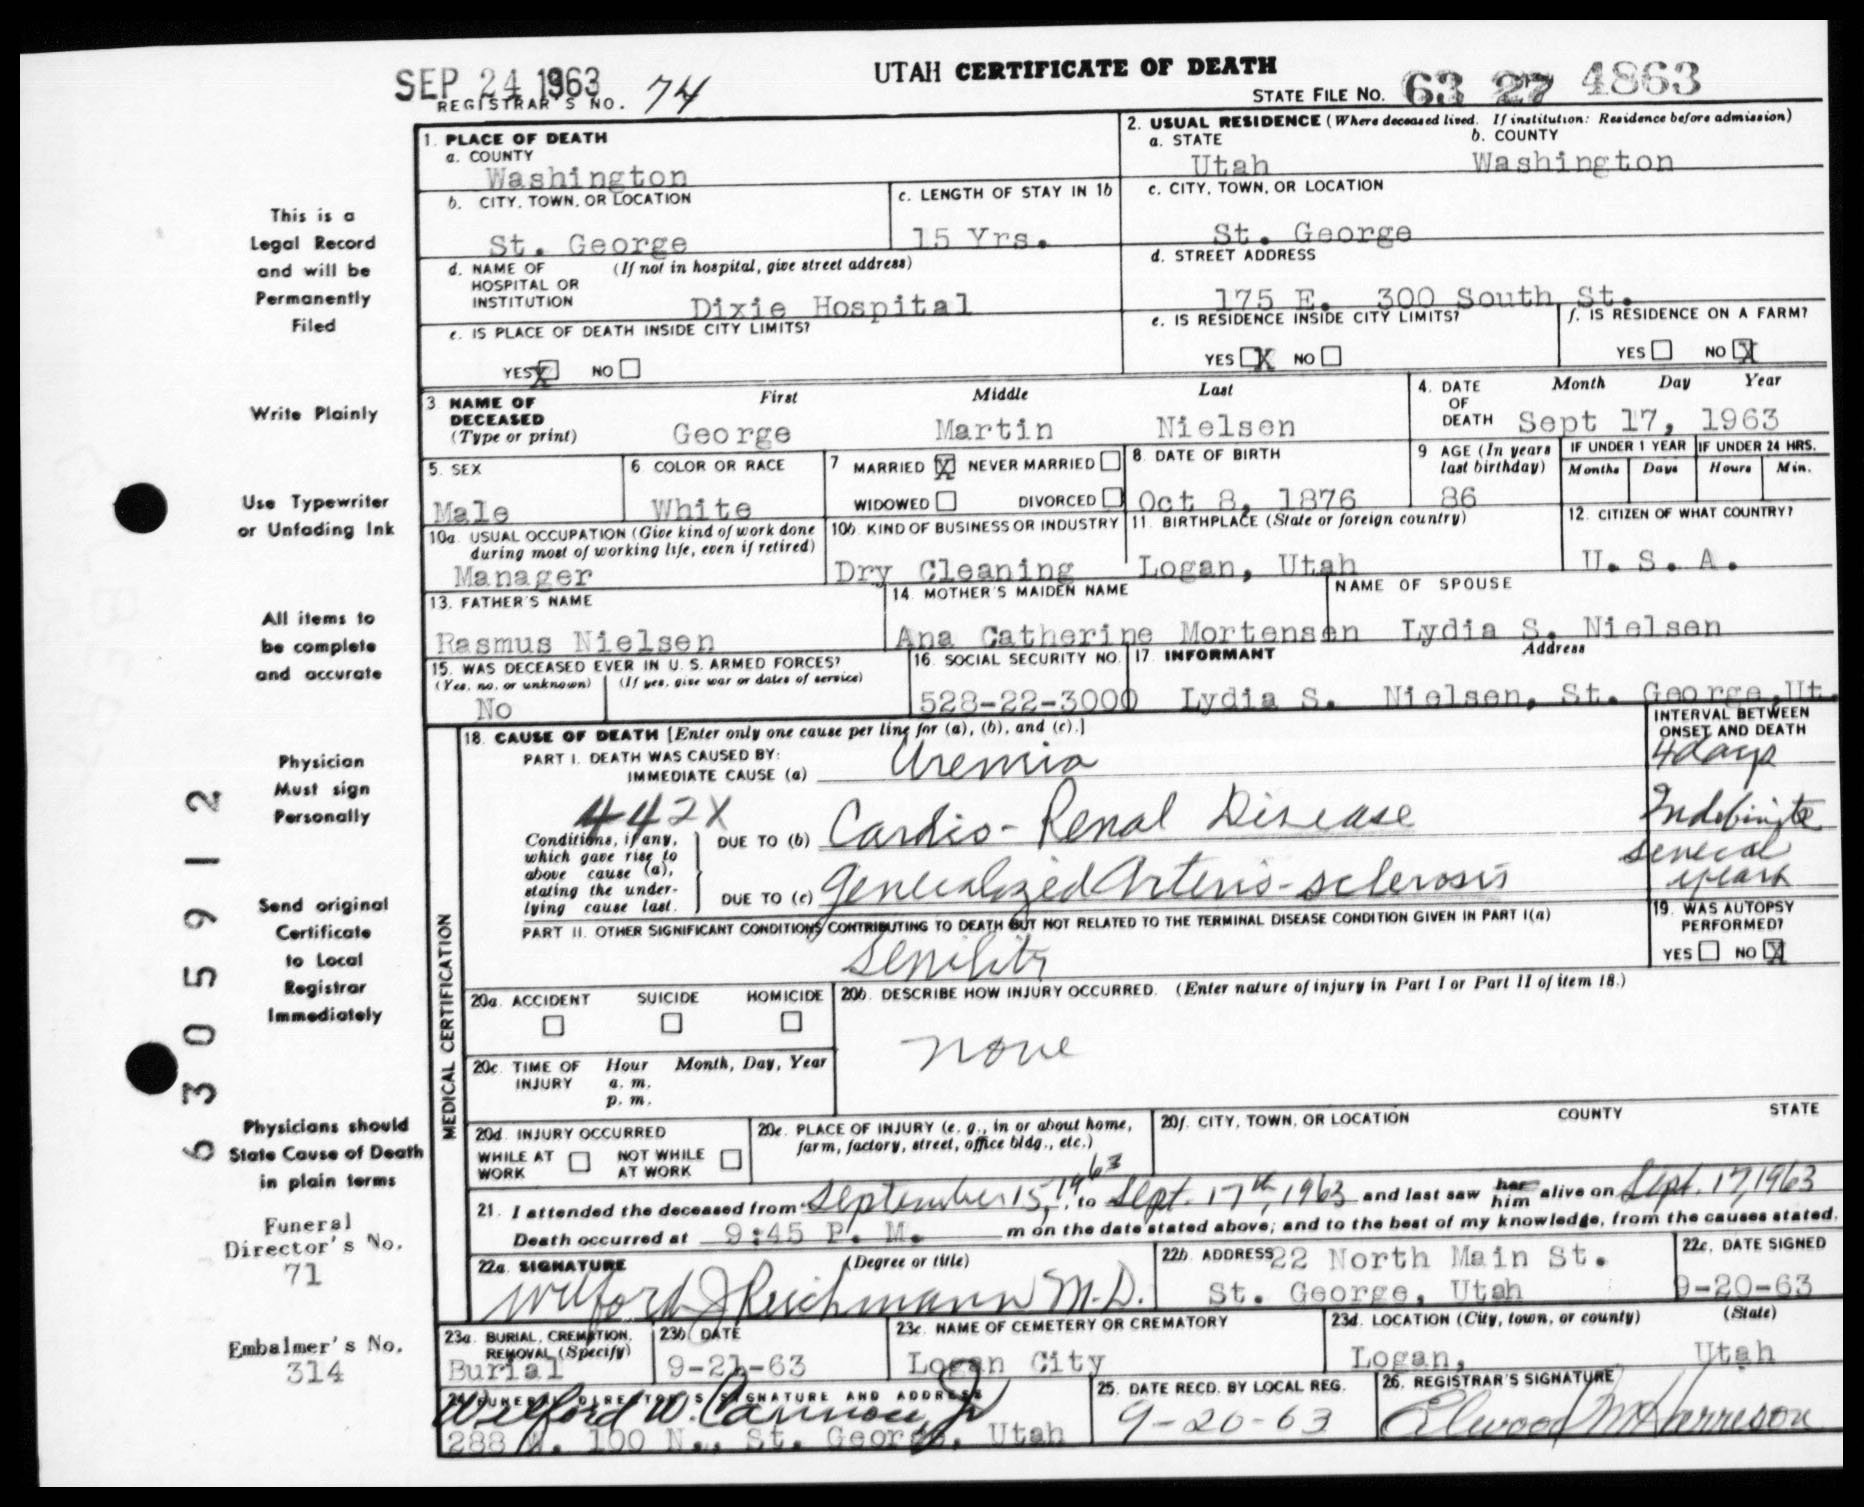 SEP 24 1963
REGISTRAR'S NO. 74
UTAH CERTIFICATE OF DEATH
STATE FILE NO. 63 27 4863
This is a
Legal Record
and will be
Permanently
Filed
Write Plainly
Use Typewriter
or Unfading Ink
All items to
be complete
and accurate
Physician
Must sign
Personally
Send original
Certificate
to Local
Registrar
Immediately
Physicians should
State Cause of Death
in plain terms
Funeral
Director's No.
71
Embalmer's No.
314
6305912
1. PLACE OF DEATH
a. COUNTY
Washington
b. CITY, TOWN, OR LOCATION
St. George
c. LENGTH OF STAY IN 1b
15 Yrs.
d. NAME OF (If not in hospital, give street address)
HOSPITAL OR
INSTITUTION Dixie Hospital
e. IS PLACE OF DEATH INSIDE CITY LIMITS?
YES X NO
2. USUAL RESIDENCE (Where deceased lived. If institution: Residence before admission)
a. STATE b. COUNTY
Utah Washington
c. CITY, TOWN, OR LOCATION
St. George
d. STREET ADDRESS
175 E. 300 South St.
e. IS RESIDENCE INSIDE CITY LIMITS?
YES X NO
f. IS RESIDENCE ON A FARM?
YES NO X
3. NAME OF DECEASED (Type or print)
First Middle Last
George Martin Nielsen
4. DATE OF DEATH Month Day Year
Sept 17, 1963
5. SEX
Male
6. COLOR OR RACE
White
7. MARRIED X NEVER MARRIED
WIDOWED DIVORCED
8. DATE OF BIRTH
Oct 8, 1876
9. AGE (In years last birthday)
86
IF UNDER 1 YEAR IF UNDER 24 HRS.
Months Days Hours Min.
10a. USUAL OCCUPATION (Give kind of work done
during most of working life, even if retired)
Manager
10b. KIND OF BUSINESS OR INDUSTRY
Dry Cleaning
11. BIRTHPLACE (State or foreign country)
Logan, Utah
12. CITIZEN OF WHAT COUNTRY?
U. S. A.
13. FATHER'S NAME
Rasmus Nielsen
14. MOTHER'S MAIDEN NAME
Ana Catherine Mortensen
NAME OF SPOUSE
Lydia S. Nielsen
15. WAS DECEASED EVER IN U. S. ARMED FORCES?
(Yes, no, or unknown) (If yes, give war or dates of service)
No
16. SOCIAL SECURITY NO.
528-22-3000
17. INFORMANT Address
Lydia S. Nielsen, St. George, Ut.
MEDICAL CERTIFICATION
18. CAUSE OF DEATH [Enter only one cause per line for (a), (b), and (c).]
PART I. DEATH WAS CAUSED BY:
IMMEDIATE CAUSE (a) Uremia
INTERVAL BETWEEN
ONSET AND DEATH
4 days
442X
Conditions, if any,
which gave rise to
above cause (a),
stating the under-
lying cause last.
DUE TO (b) Cardio-Renal Disease
Indefinite
DUE TO (c) Generalized Arterio-sclerosis
several
years
PART II. OTHER SIGNIFICANT CONDITIONS CONTRIBUTING TO DEATH BUT NOT RELATED TO THE TERMINAL DISEASE CONDITION GIVEN IN PART I(a)
Senility
19. WAS AUTOPSY
PERFORMED?
YES NO X
20a. ACCIDENT SUICIDE HOMICIDE
20b. DESCRIBE HOW INJURY OCCURRED. (Enter nature of injury in Part I or Part II of item 18.)
none
20c. TIME OF INJURY Hour Month, Day, Year
a. m.
p. m.
20d. INJURY OCCURRED
WHILE AT WORK NOT WHILE AT WORK
20e. PLACE OF INJURY (e. g., in or about home,
farm, factory, street, office bldg., etc.)
20f. CITY, TOWN, OR LOCATION COUNTY STATE
21. I attended the deceased from September 15, 1963, to Sept. 17th, 1963 and last saw her him alive on Sept. 17, 1963
Death occurred at 9:45 P. M. m on the date stated above; and to the best of my knowledge, from the causes stated.
22a. SIGNATURE (Degree or title)
Wilford J Reichmann M.D.
22b. ADDRESS 22 North Main St.
St. George, Utah
22c. DATE SIGNED
9-20-63
23a. BURIAL, CREMATION,
REMOVAL (Specify)
Burial
23b. DATE
9-21-63
23c. NAME OF CEMETERY OR CREMATORY
Logan City
23d. LOCATION (City, town, or county) (State)
Logan, Utah
24. FUNERAL DIRECTOR'S SIGNATURE AND ADDRESS
Wilford W. Cannon, Jr
288 W. 100 N., St. George, Utah
25. DATE RECD. BY LOCAL REG.
9-20-63
26. REGISTRAR'S SIGNATURE
Elwood M Harrison